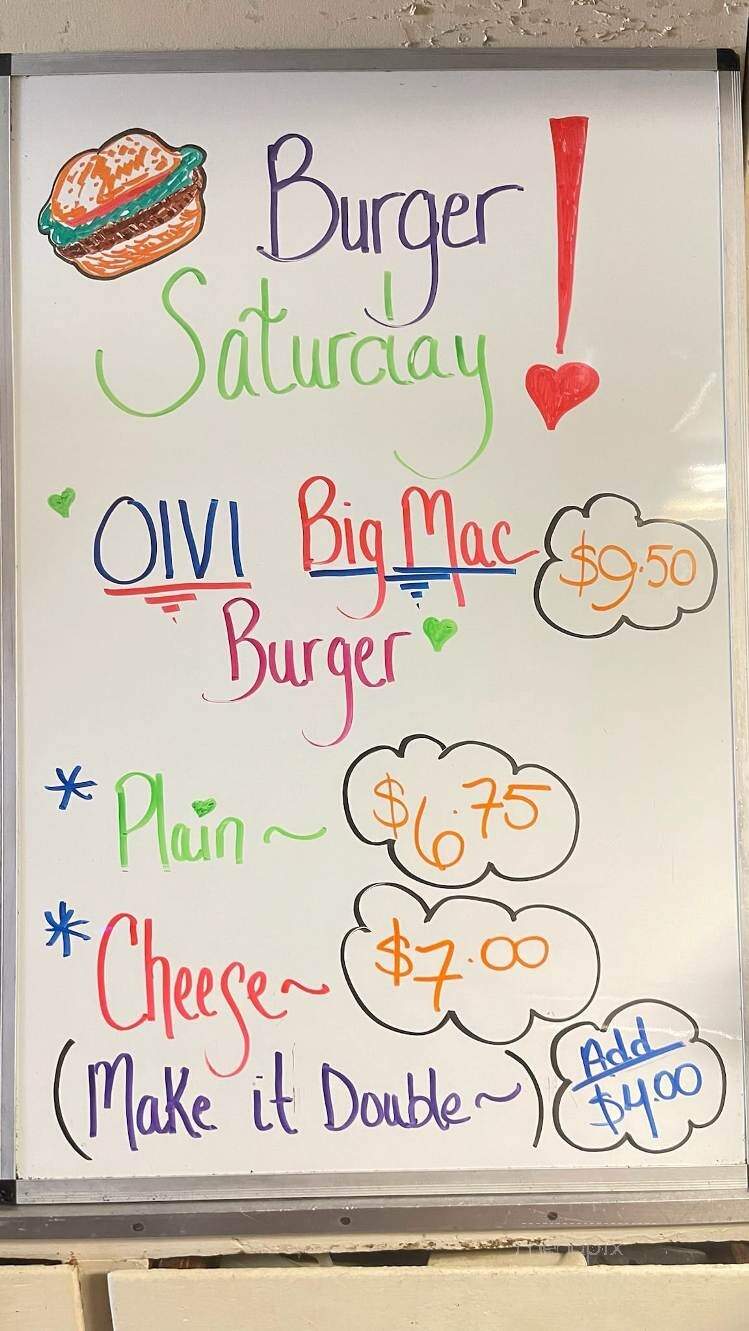 Burger!
Saturday
OIVI Big Mac $9.50
Burger
* Plain ~ $6.75
* Cheese ~ $7.00
(Make it Double ~) Add $4.00
menupix